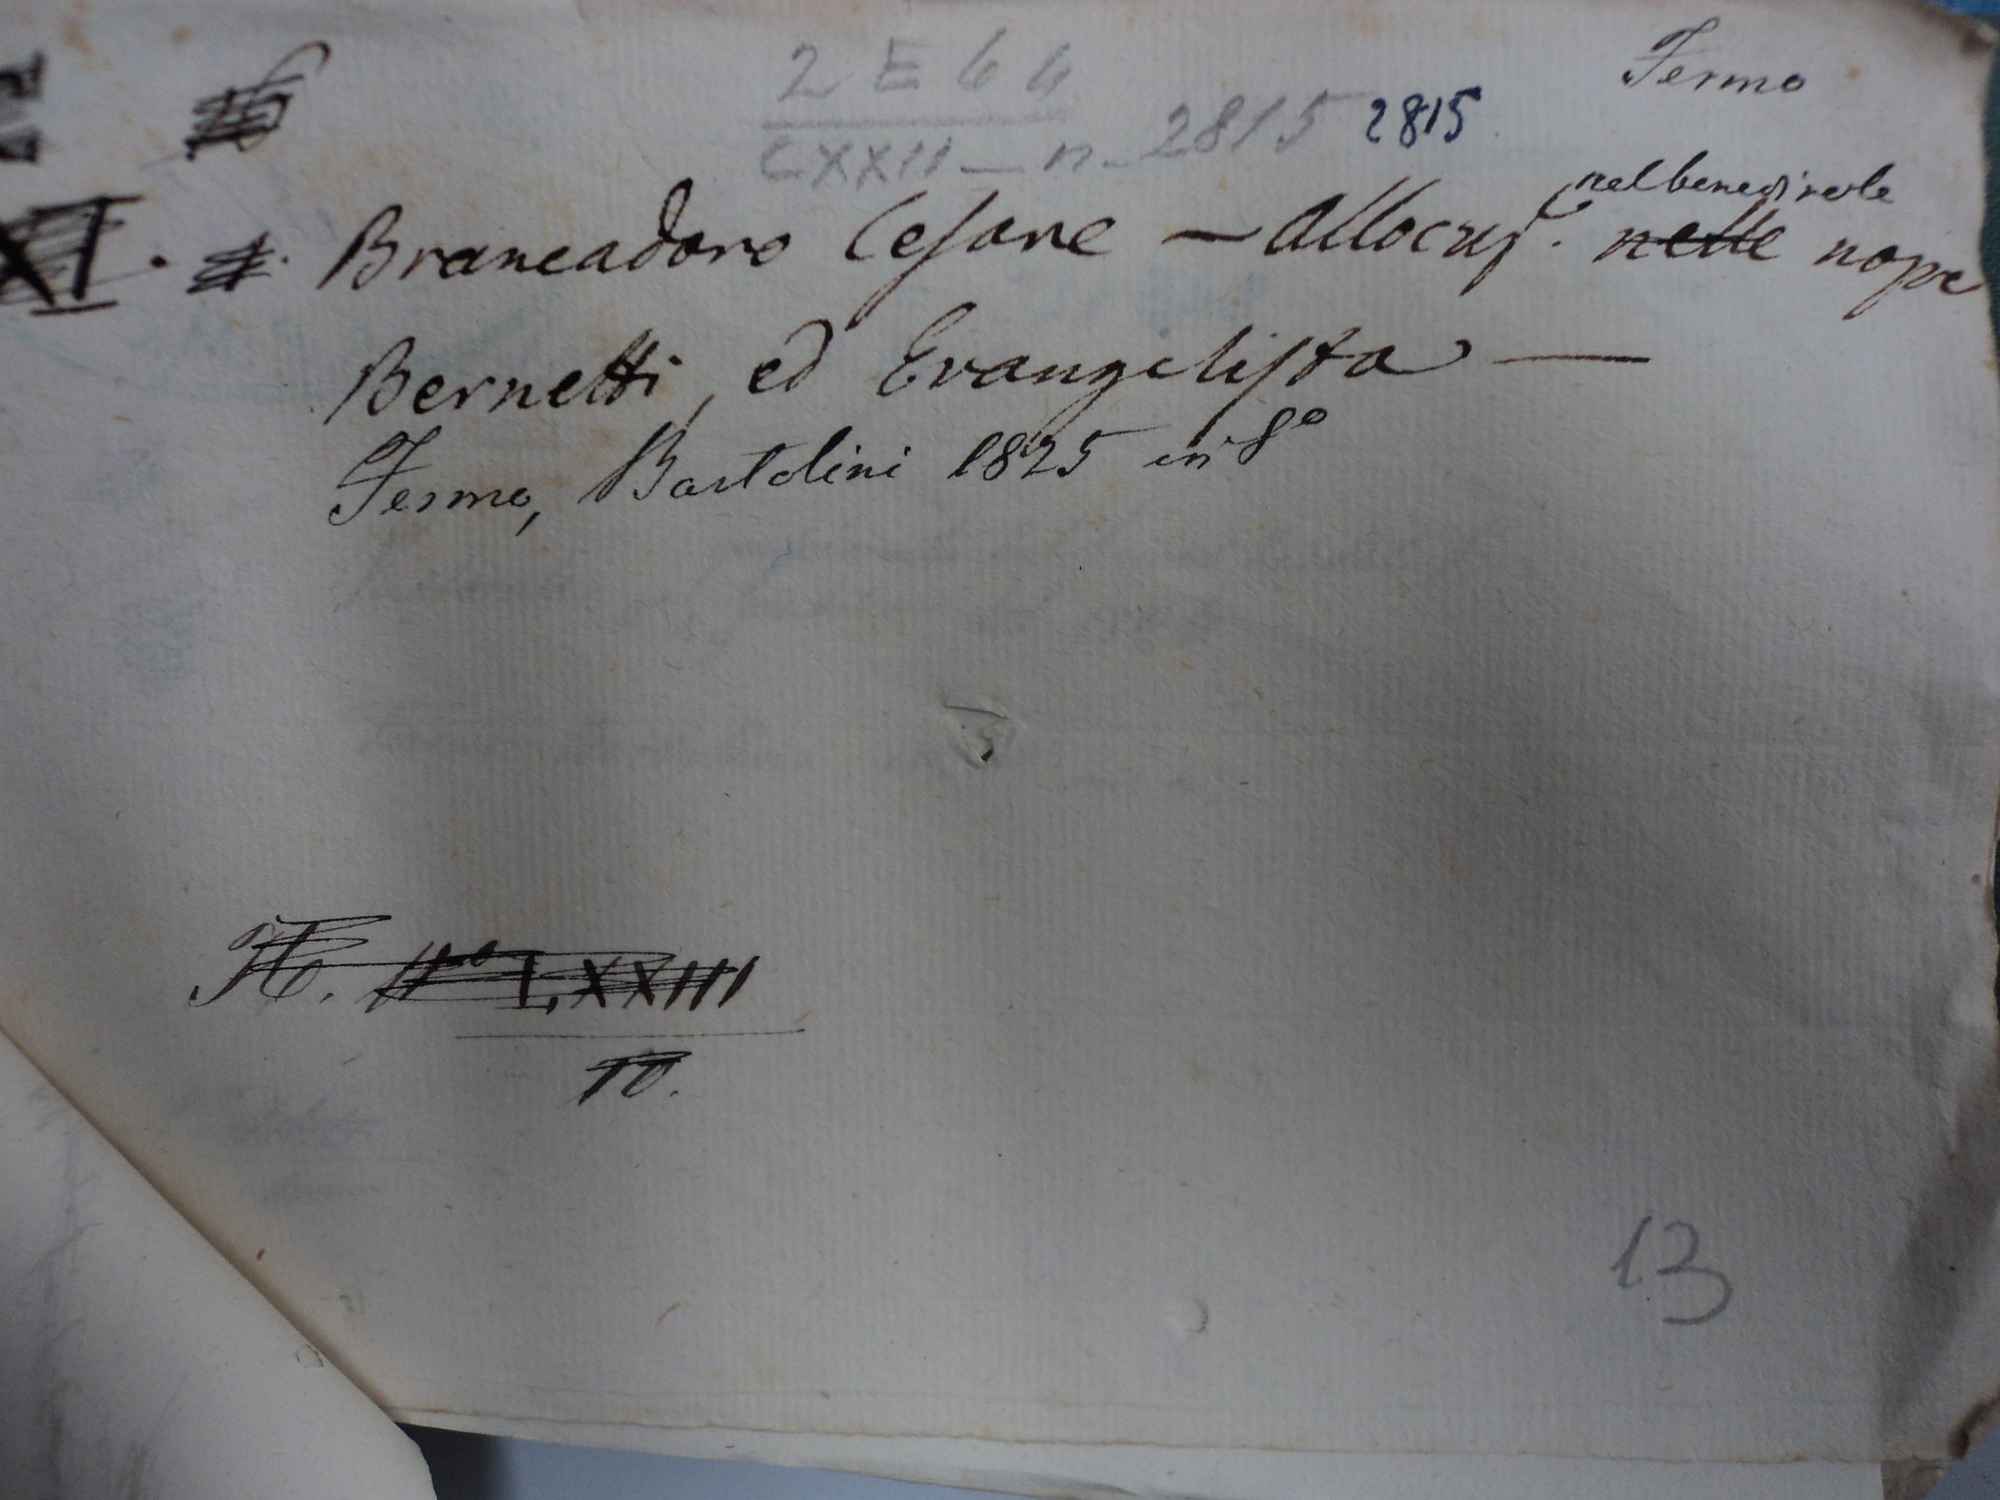 Fermo
2 E 6 6
CXXII - n. 2815 2815
nel benedirele
XI. Brancadoro Cesare - Allocuz. nelle nozze
Bernetti, ed Evangelista —
Fermo, Bartolini 1825 in 8º
LXXIII
10.
13